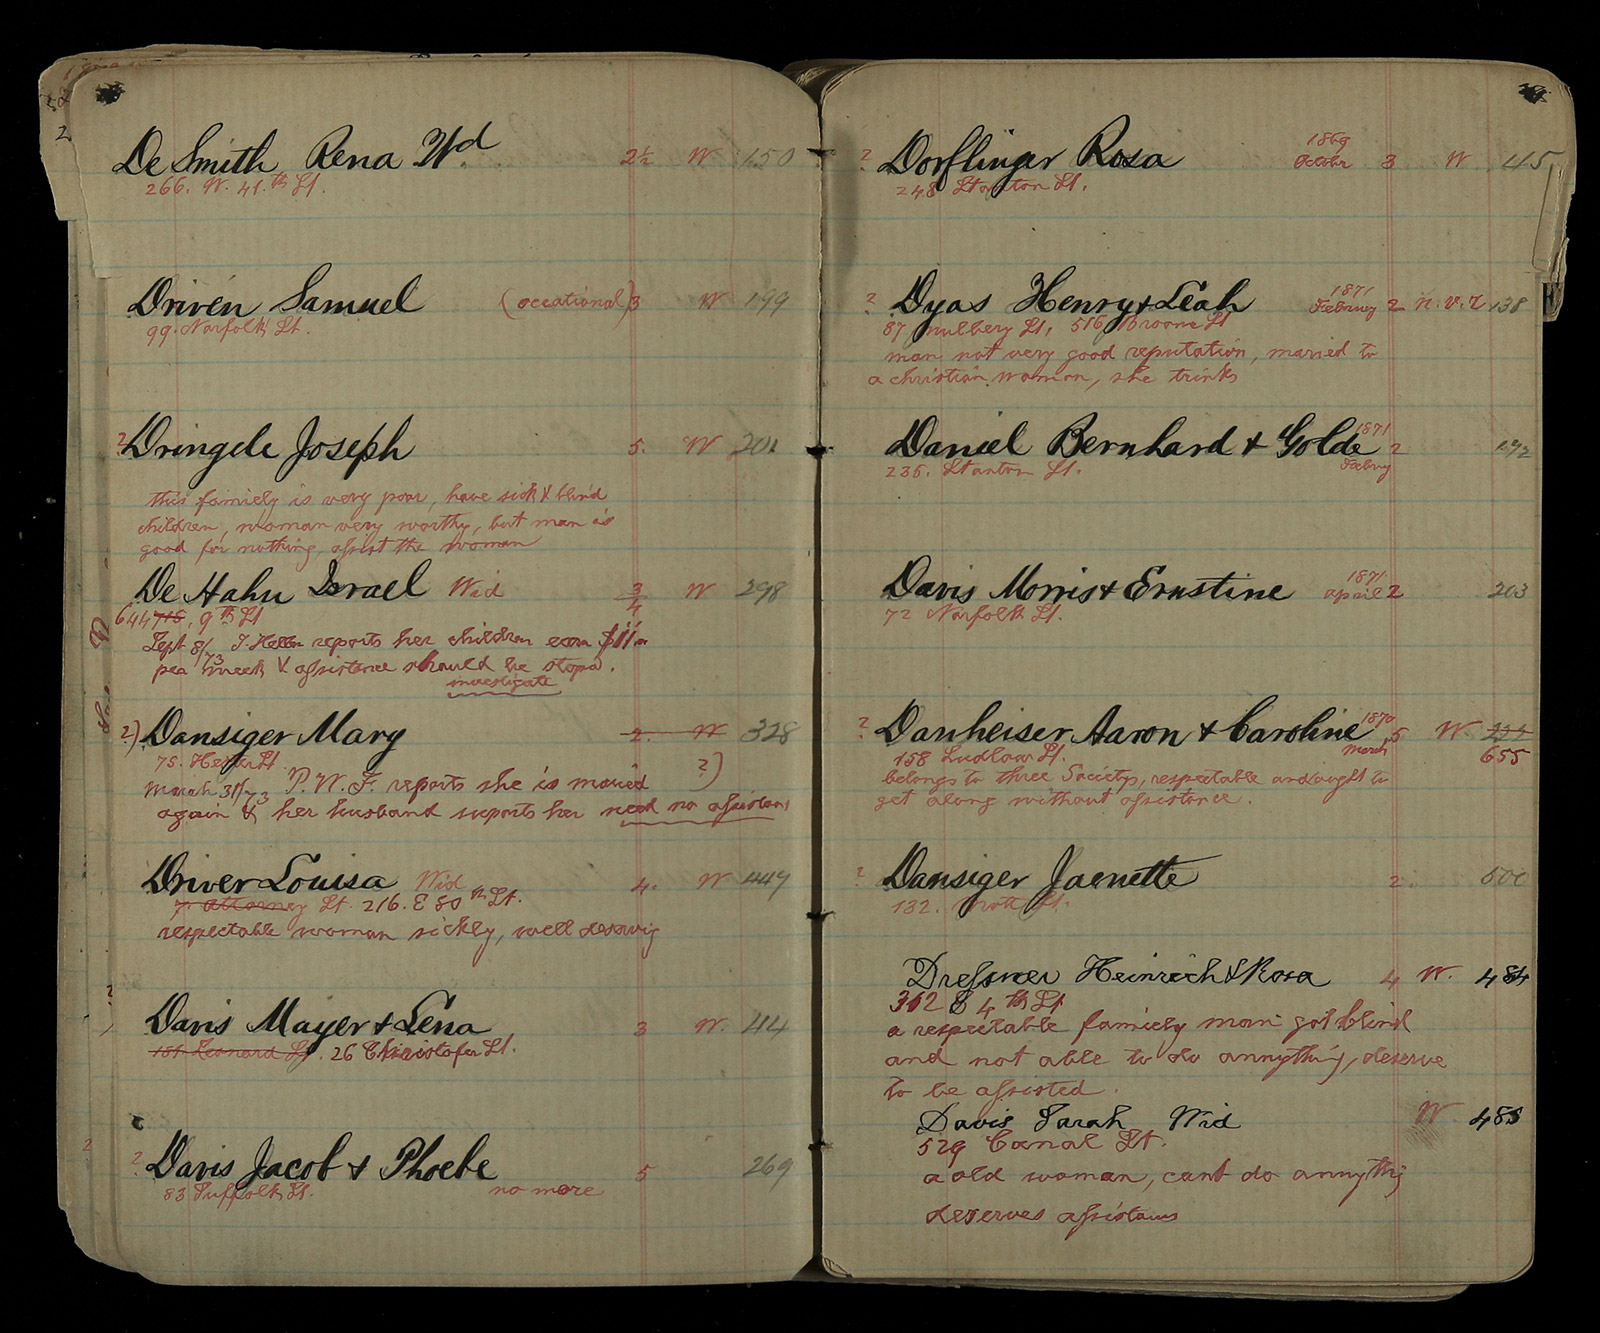 De Smith Rena Wd 2½ W 150
266. W. 41.th St.
Driven Samuel (occational) 3 W 199
99. Norfolk St.
? Dringele Joseph 5. W 201
this famiely is very poor, have sick & blind
children, woman very worthy, but man is
good for nothing, assist the woman
De Hahn Israel Wid 3/4 W 298
644 715, 9th St
Sept 8/73 I. Heller reports her children earn $11.00
pea week & assistence should be stopd.
investigate
?) Dansiger Mary 2. W 328
75. Hester St. ?)
March 31/73 P. W. F. reports she is maried
again & her husband suports her need no assistens
Driver Louisa Wid 4. W 449
7. Attorney St. 216. E 80th St.
respectable woman sickly, well deservig
Davis Mayer & Lena 3 W. 414
151. Leonard St. 26 Christofer St.
? Davis Jacob & Phoebe 5 269
83 Suffolk St. no more
29
? Dorflinger Rosa 1869 October 3 W. 415
248 Stanton St.
? Dyas Henry & Leah 1871 February 2 n.v.r 138
87 mulbery St, 516 Broome St
man not very good reputation, maried to
a christian woman, she trinks
Daniel Bernhard & Golde 1871 2 172
235. Stanton St. Febury
Davis Morris & Ernstine 1871 april 2 203
72 Norfolk St.
? Danheiser Aaron & Caroline 1870 March 5 W.
158 Ludlow St. 655
belongs to three Societys, respectable and aught to
get along without assistence.
? Dansiger Jaenette 2. 500
132. Mott St.
Dressner Heinrich & Rosa 4 W. 484
312 E 4th St
a respectable famiely man got blind
and not able to do annything, deserve
to be assisted.
Davis Sarah Wid W. 485
529 Canal St.
a old woman, cant do annythig
deserves assistans